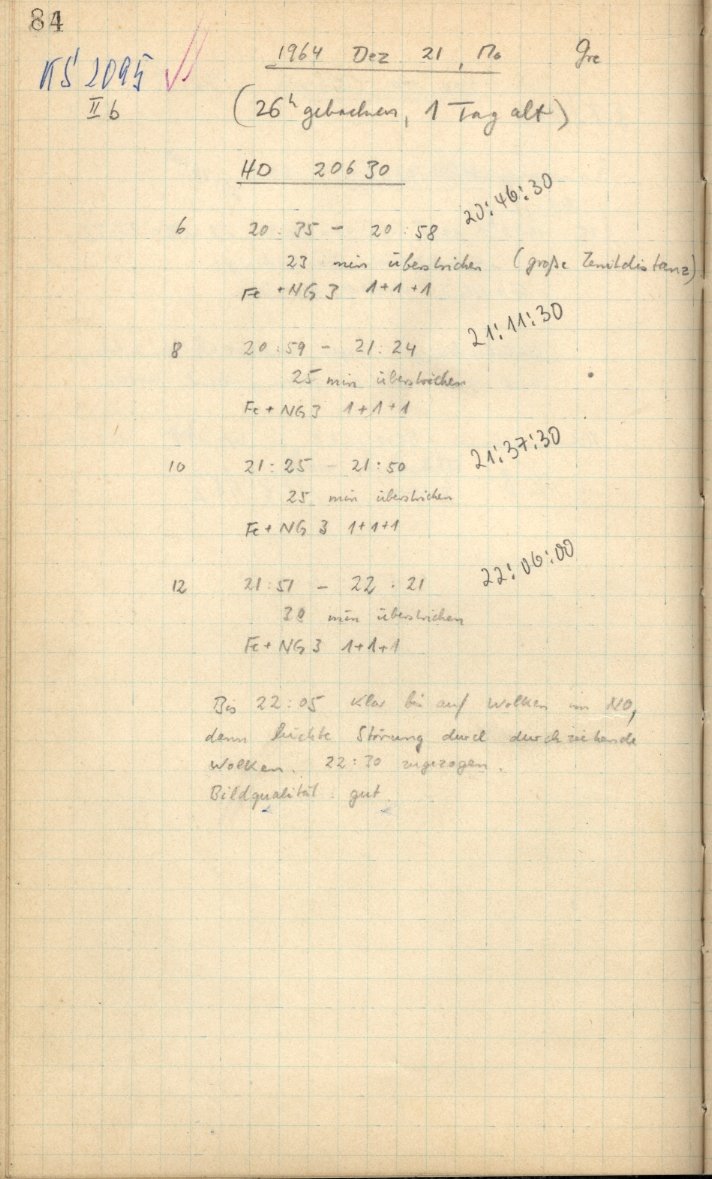 84
KS 2095
II b
1964 Dez 21, Mo Gre
(26h gebacken, 1 Tag alt)
HD 20630
20:46:30
6 20:35 - 20:58
23 min überstrichen (große Zenitdistanz)
Fe + NG 3 1+1+1
21:11:30
8 20:59 - 21:24
25 min überstrichen
Fe + NG 3 1+1+1
21:37:30
10 21:25 - 21:50
25 min überstrichen
Fe + NG 3 1+1+1
22:06:00
12 21:51 - 22:21
30 min überstrichen
Fe + NG 3 1+1+1
Bis 22:05 klar bis auf Wolken im NO,
dann leichte Störung durch durchziehende
Wolken. 22:30 zugezogen.
Bildqualität: gut